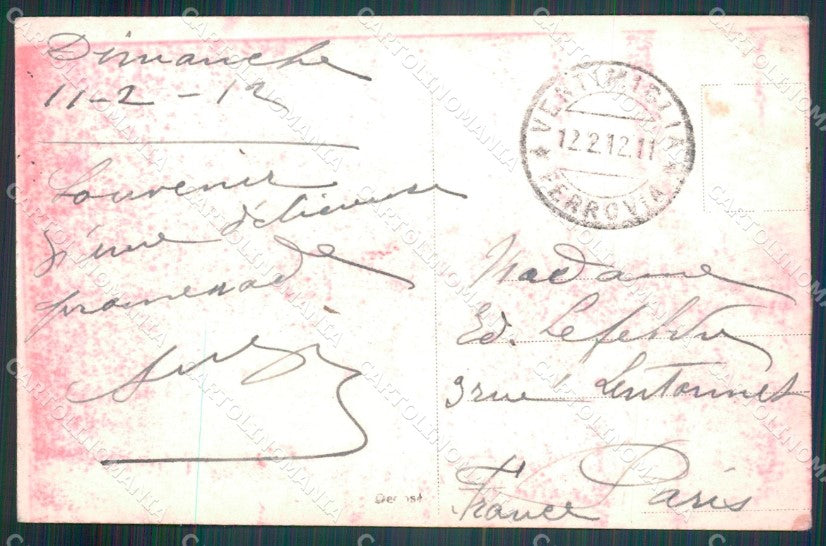 Dimanche
11-2-12
Souvenir
d'une délicieuse
promenade
VENTIMIGLIA
12.2.12.11
* FERROVIA *
Madame
Ed. Lefebvre
3 rue Lentonnet
Paris
France
CARTOLINOMANIA